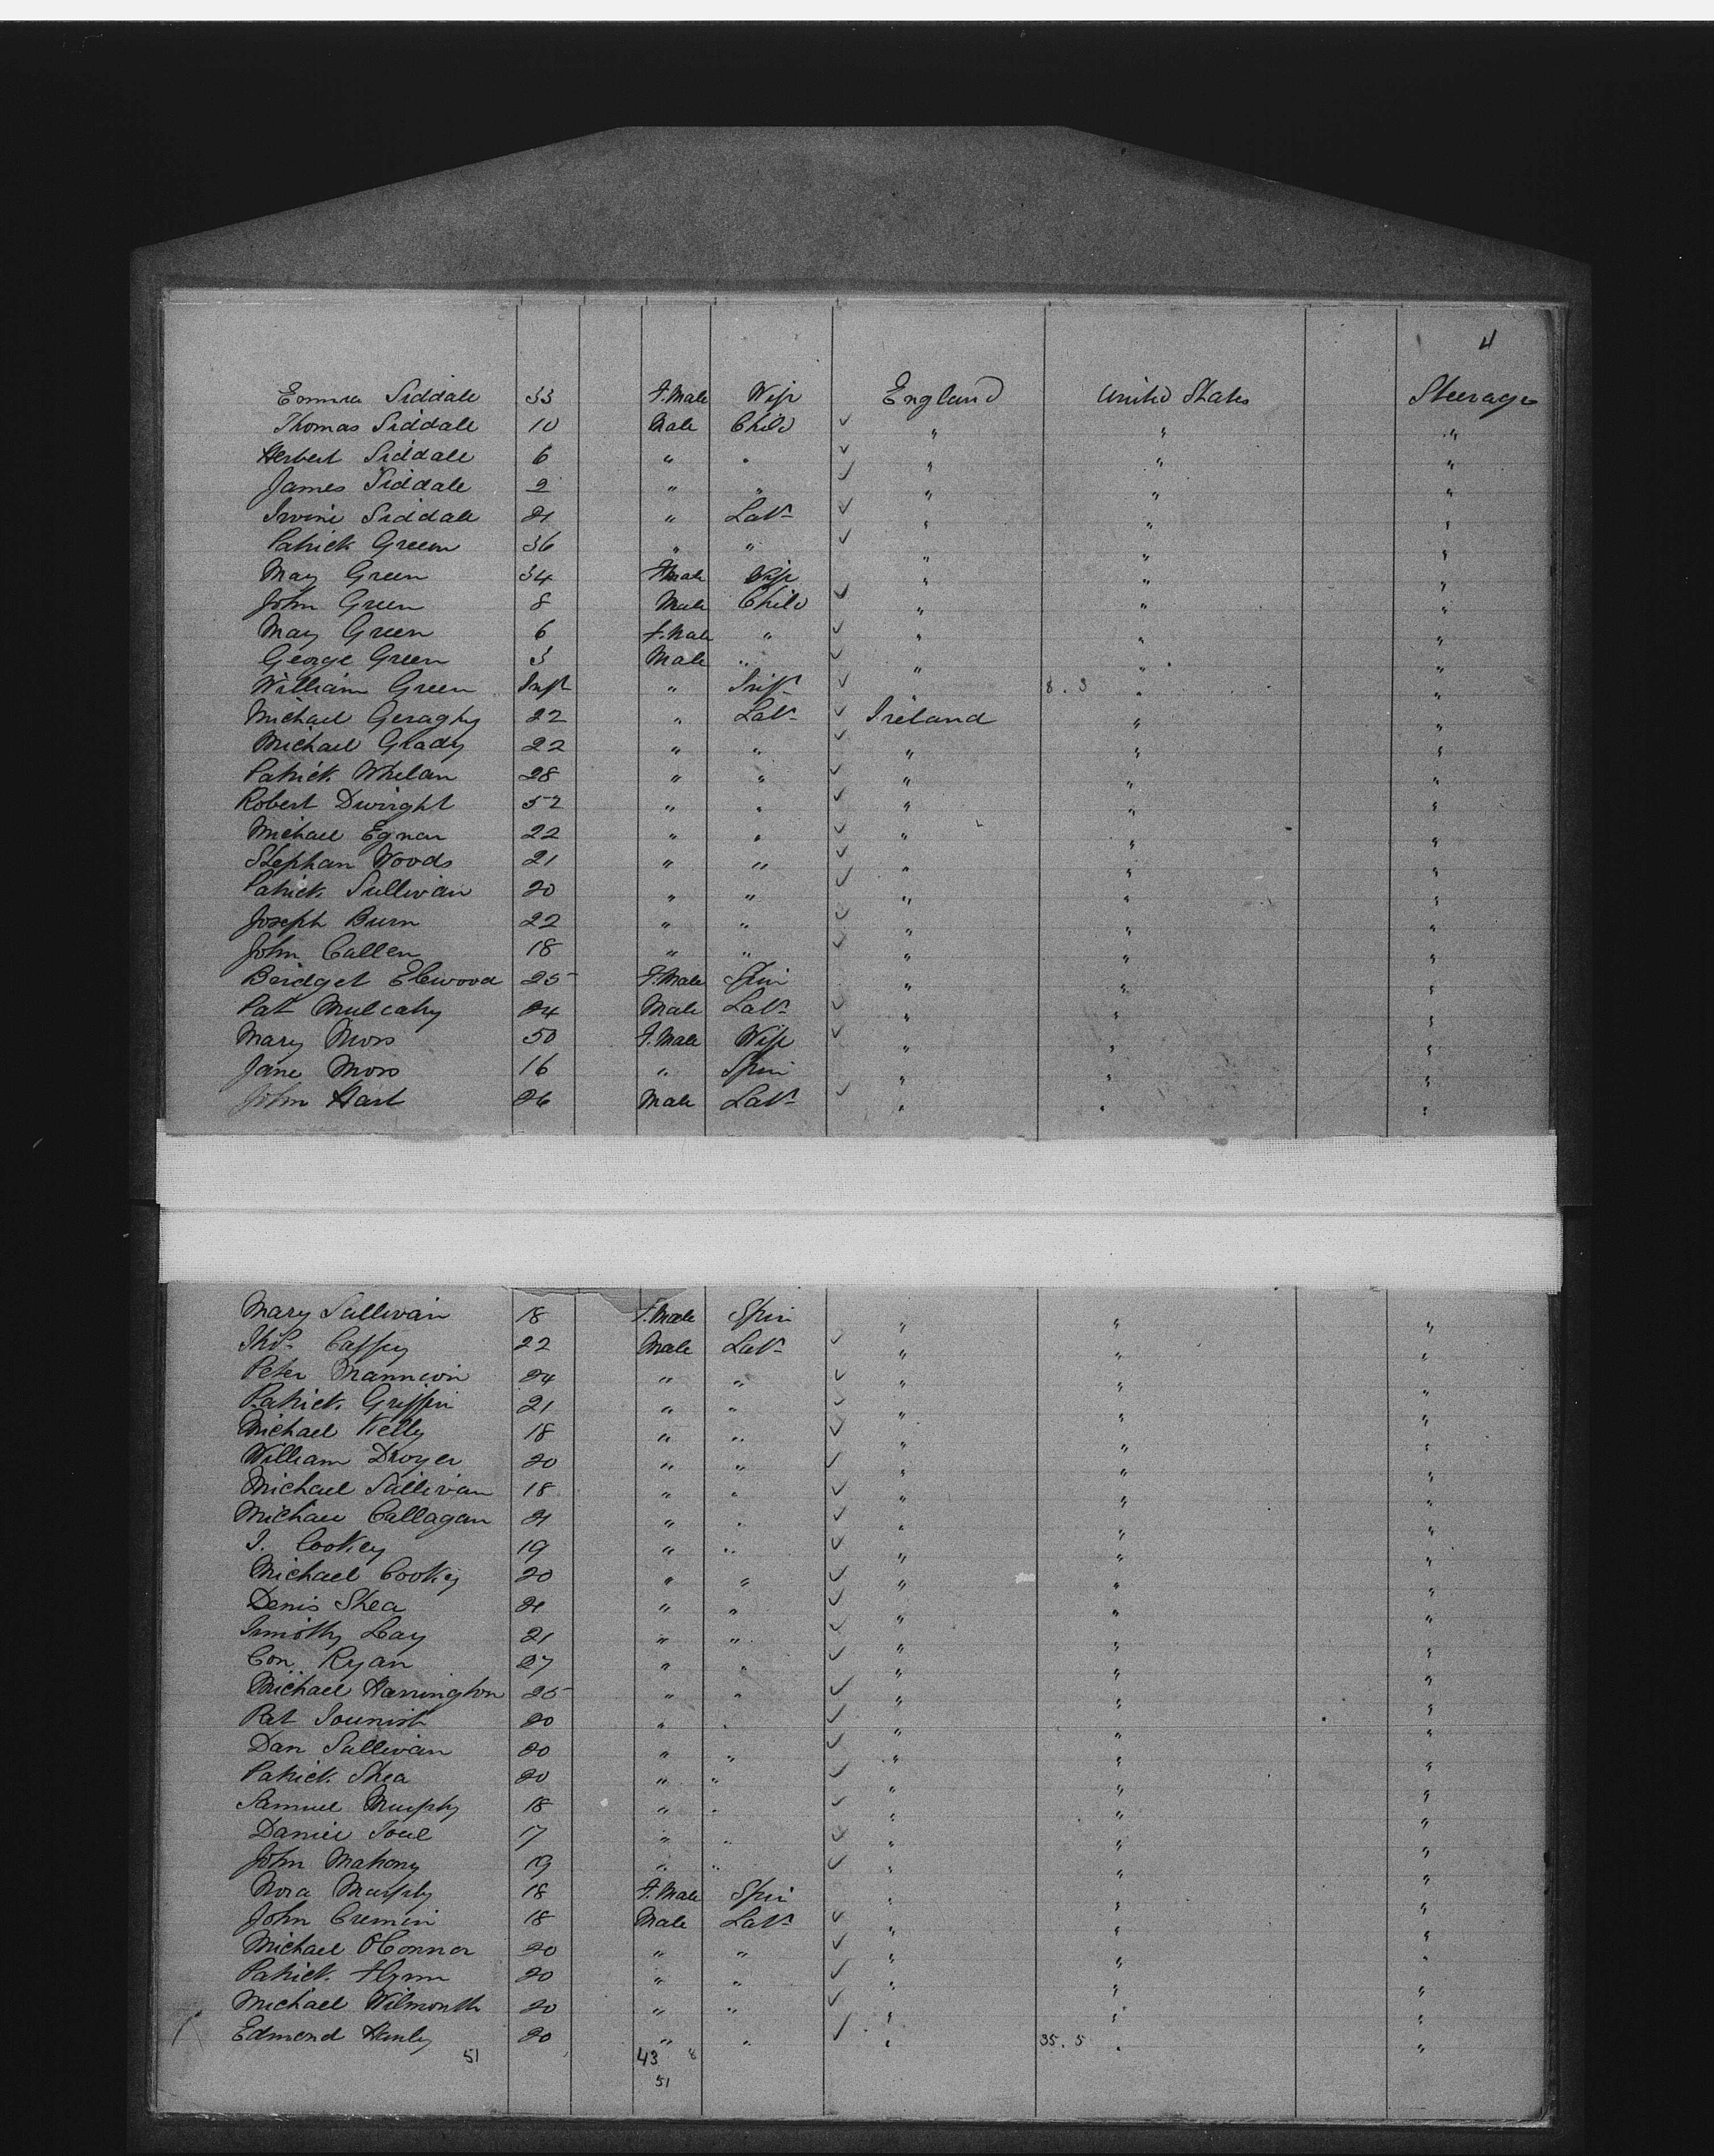 4
Emma Siddale 33 F.Male Wife England United States Steerage
Thomas Siddale 10 Male Child ✓ " " "
Herbert Siddale 6 " " ✓ " " "
James Siddale 2 " " ✓ " " "
Irvine Siddale 21 " Labr ✓ " " "
Patrick Green 36 " " ✓ " " "
May Green 34 F.Male Wife " " "
John Green 8 Male Child ✓ " " "
May Green 6 F.Male " ✓ " " "
George Green 3 Male " ✓ " " "
William Green Inft " Inft ✓ " 8.3 " "
Michael Geraghy 22 " Labr ✓ Ireland " "
Michael Glady 22 " " ✓ " " "
Patrick Whelan 28 " " ✓ " " "
Robert Dwright 52 " " ✓ " " "
Michael Egnar 22 " " ✓ " " "
Stephan Woods 21 " " ✓ " " "
Patrick Sullivan 20 " " ✓ " " "
Joseph Burn 22 " " ✓ " " "
John Callen 18 " " ✓ " " "
Bridget Elewood 25 F.Male Spin " " "
Pat Mulcahy 24 Male Labr ✓ " " "
Mary Moss 50 F.Male Wife ✓ " " "
Jane Moss 16 " Spin " " "
John Hart 26 Male Labr ✓ " " "
Mary Sullivan 18 F.Male Spin " " "
Thos Caffey 22 Male Labr ✓ " " "
Peter Mannion 24 " " ✓ " " "
Patrick Griffin 21 " " ✓ " " "
Michael Kelly 18 " " ✓ " " "
William Dwyer 20 " " ✓ " " "
Michael Sullivan 18 " " ✓ " " "
Michael Callagan 21 " " ✓ " " "
J. Cookey 19 " " ✓ " " "
Michael Cookey 20 " " ✓ " " "
Denis Shea 21 " " ✓ " " "
Timothy Lay 21 " " ✓ " " "
Con Ryan 27 " " ✓ " " "
Michael Harrington 25 " " ✓ " " "
Pat 20 " " ✓ " " "
Dan Sullivan 20 " " ✓ " " "
Patrick Shea 20 " " ✓ " " "
Samuel Murphy 18 " " ✓ " " "
Daniel 17 " " ✓ " " "
John Mahony 19 " " ✓ " " "
Nora Murphy 18 F.Male Spin " " "
John Cremin 18 Male Labr ✓ " " "
Michael O'Connor 20 " " ✓ " " "
Patrick Flynn 20 " " ✓ " " "
Michael Wilmouth 20 " " ✓ " " "
Edmond Hanley 20 " " ✓ " 35.5 " "
51 43 8
51